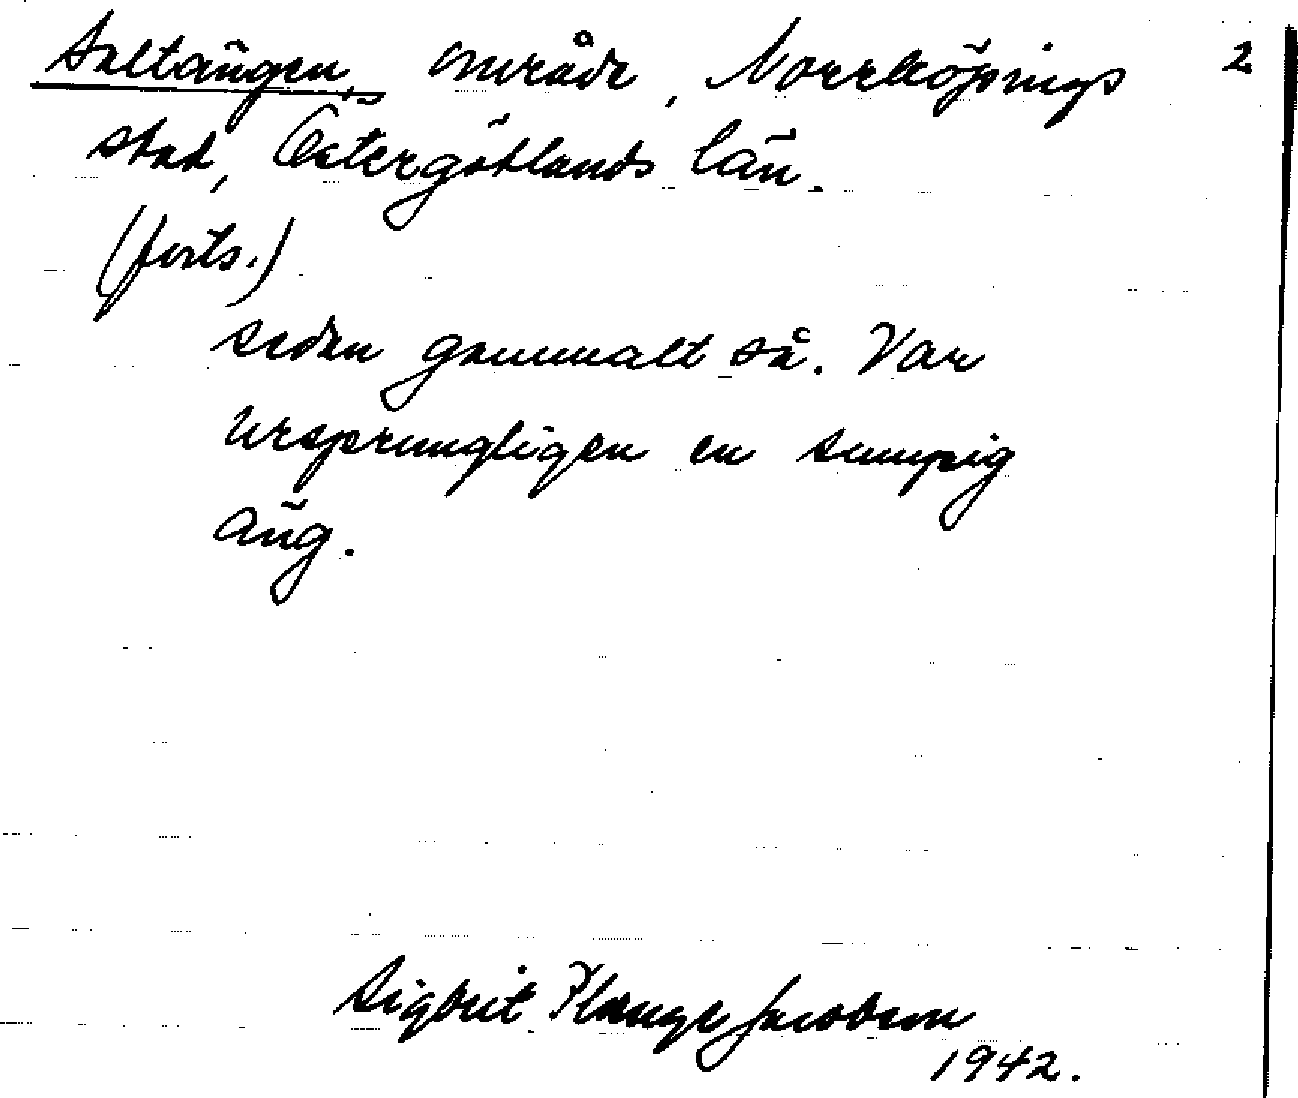 Saltängen, område, Norrköpings 2
stad, Östergötlands län.
(forts.)
sedan gammalt så. Var
ursprungligen en sumpig
äng.
Sigbrit Plange Jacobson
1942.